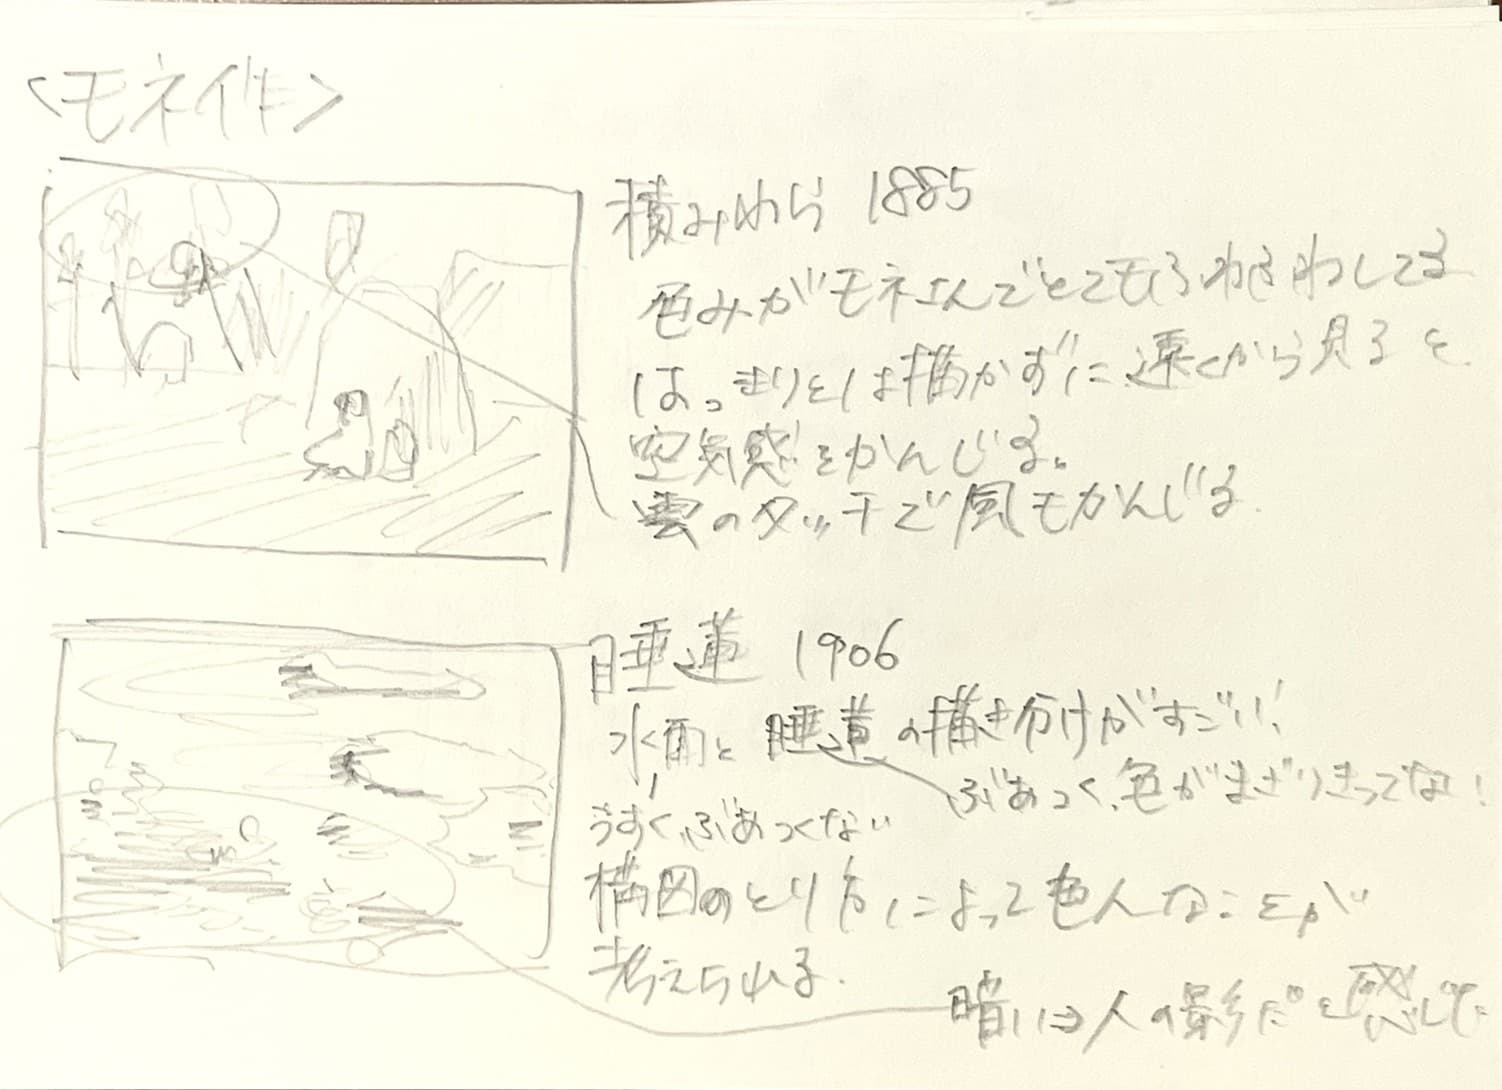 <モネ作>
積みわら 1885
色みがモネさんでとてもふわふわしてる
はっきりとは描かずに遠くから見ると
空気感をかんじる。
雲のタッチで風もかんじる
睡蓮 1906
水面と睡蓮の描き分けがすごい!
ぶあつく、色がまざりきってない!
うすく、ぶあつくない
構図のとり方によって色んなことが
考えられる.
暗いは人の影だと感じた